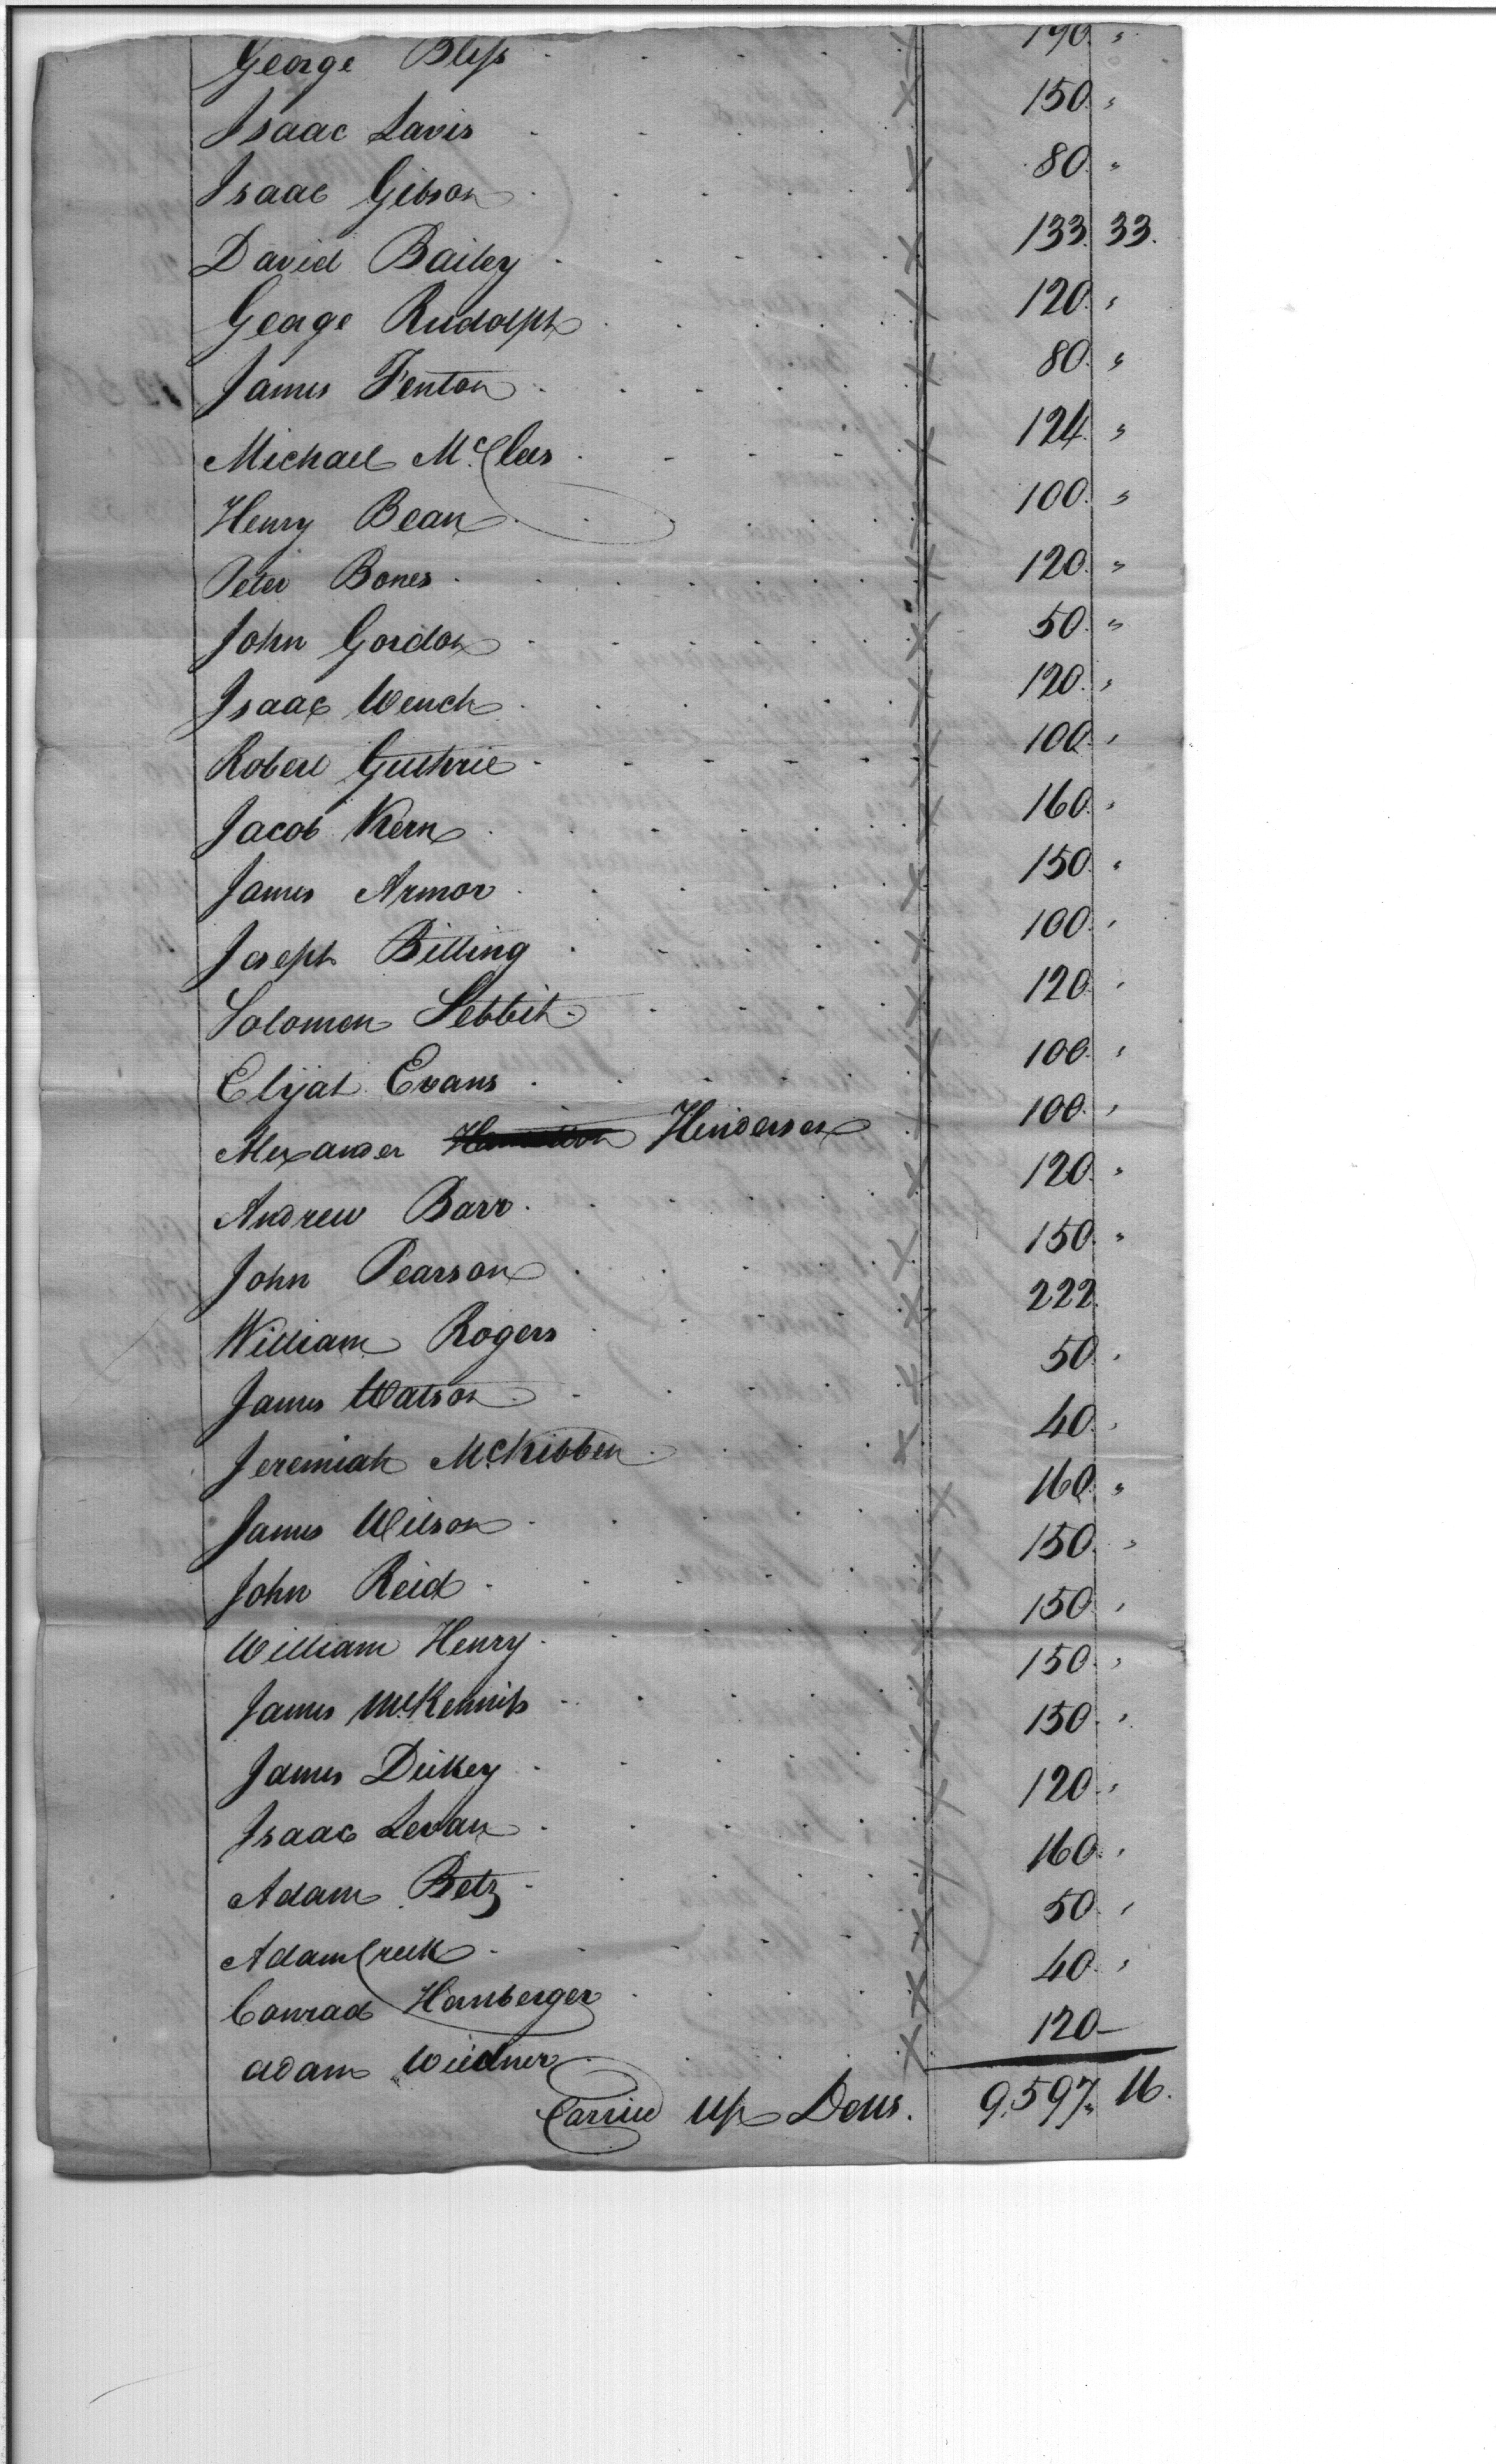 George Bless 190 "
Isaac Lavis 150 "
Isaac Gibson 80 "
David Bailey 133. 33.
George Rudolph 120. "
James Fenton 80. "
Michael McClees 124. "
Henry Bean 100. "
Peter Bones 120. "
John Gordon 50. "
Isaac Wench 120. "
Robert Guthrie 100. "
Jacob Kern 160. "
James Armor 150. "
Joseph Billing 100. "
Solomon Sebbit 120. "
Elijah Evans 100. "
Alexander Henderson 100. "
Andrew Barr 120. "
John Pearson 150. "
William Rogers 222.
James Watson 50. "
Jeremiah McKibben 40. "
James Wilson 160. "
John Reid 150. "
William Henry 150. "
James McKennis 150. "
James Dickey 150. "
Isaac Levan 120. "
Adam Betz 160. "
Adam Creek 50. "
Conrad Hamberger 40. "
Adam Weidner 120 —
Carried up Dolls. 9,597. 16.